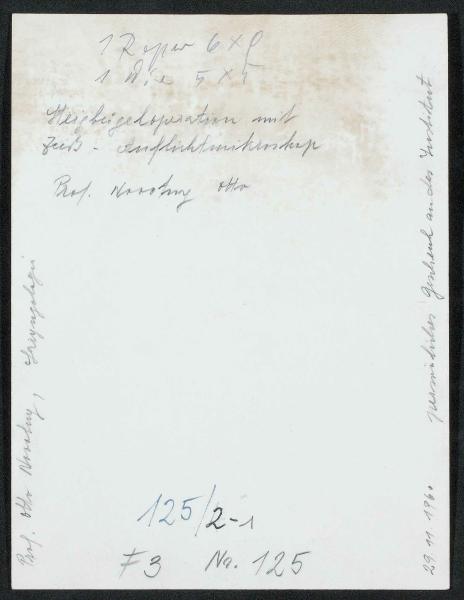 1 Repro 6 x 9
1 Dia 5 x 5
Steigbügeloperation mit
Zeiß - Auflichtmikroskop
Prof. Novotny Otto
Prof. Otto Novotny, Laryngologie
29.11.1960 persönliches Geschenk an das Institut
125/2-1
F3 Na. 125